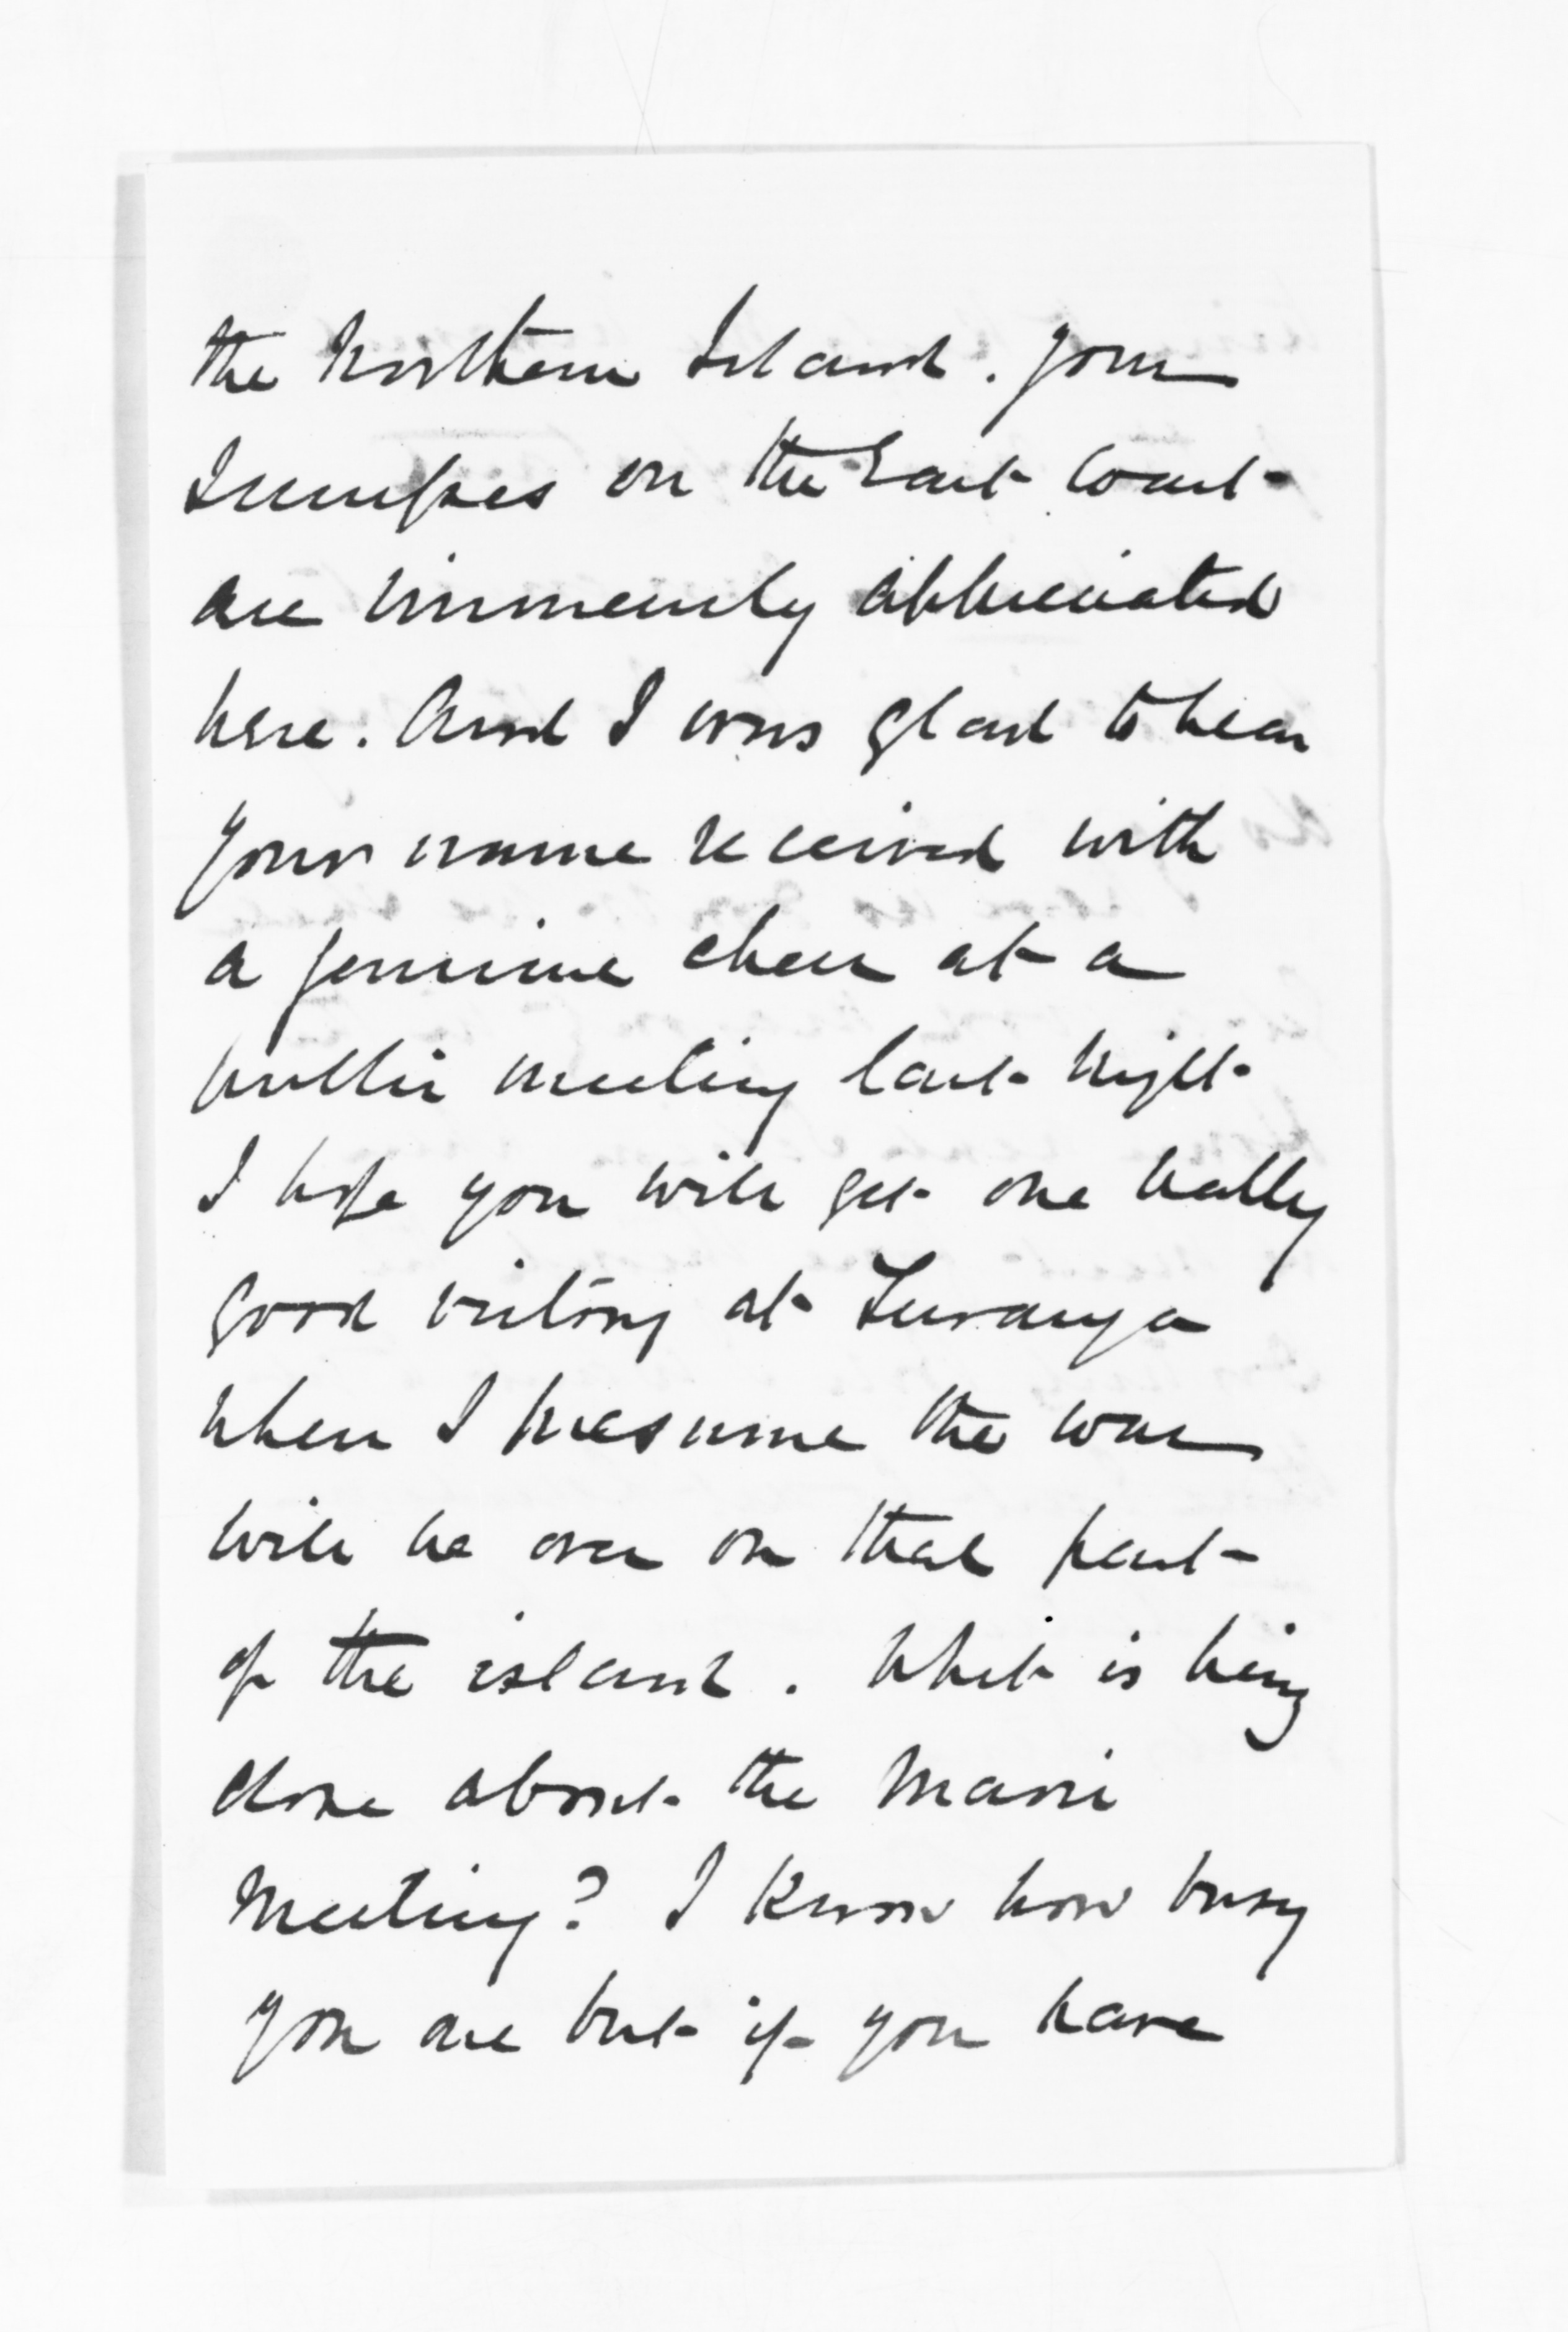 the Northern Island. Your
Successes on the East Coast
are immensely appreciated
here. And I was glad to hear
your name received with
a genuine cheer at a
public meeting last night.
I hope you will get one really
good victory at Turanga
when I presume the war
will be over on that part
of the island. What is being
done about the Maori
Meeting? I know how busy
you are but if you have